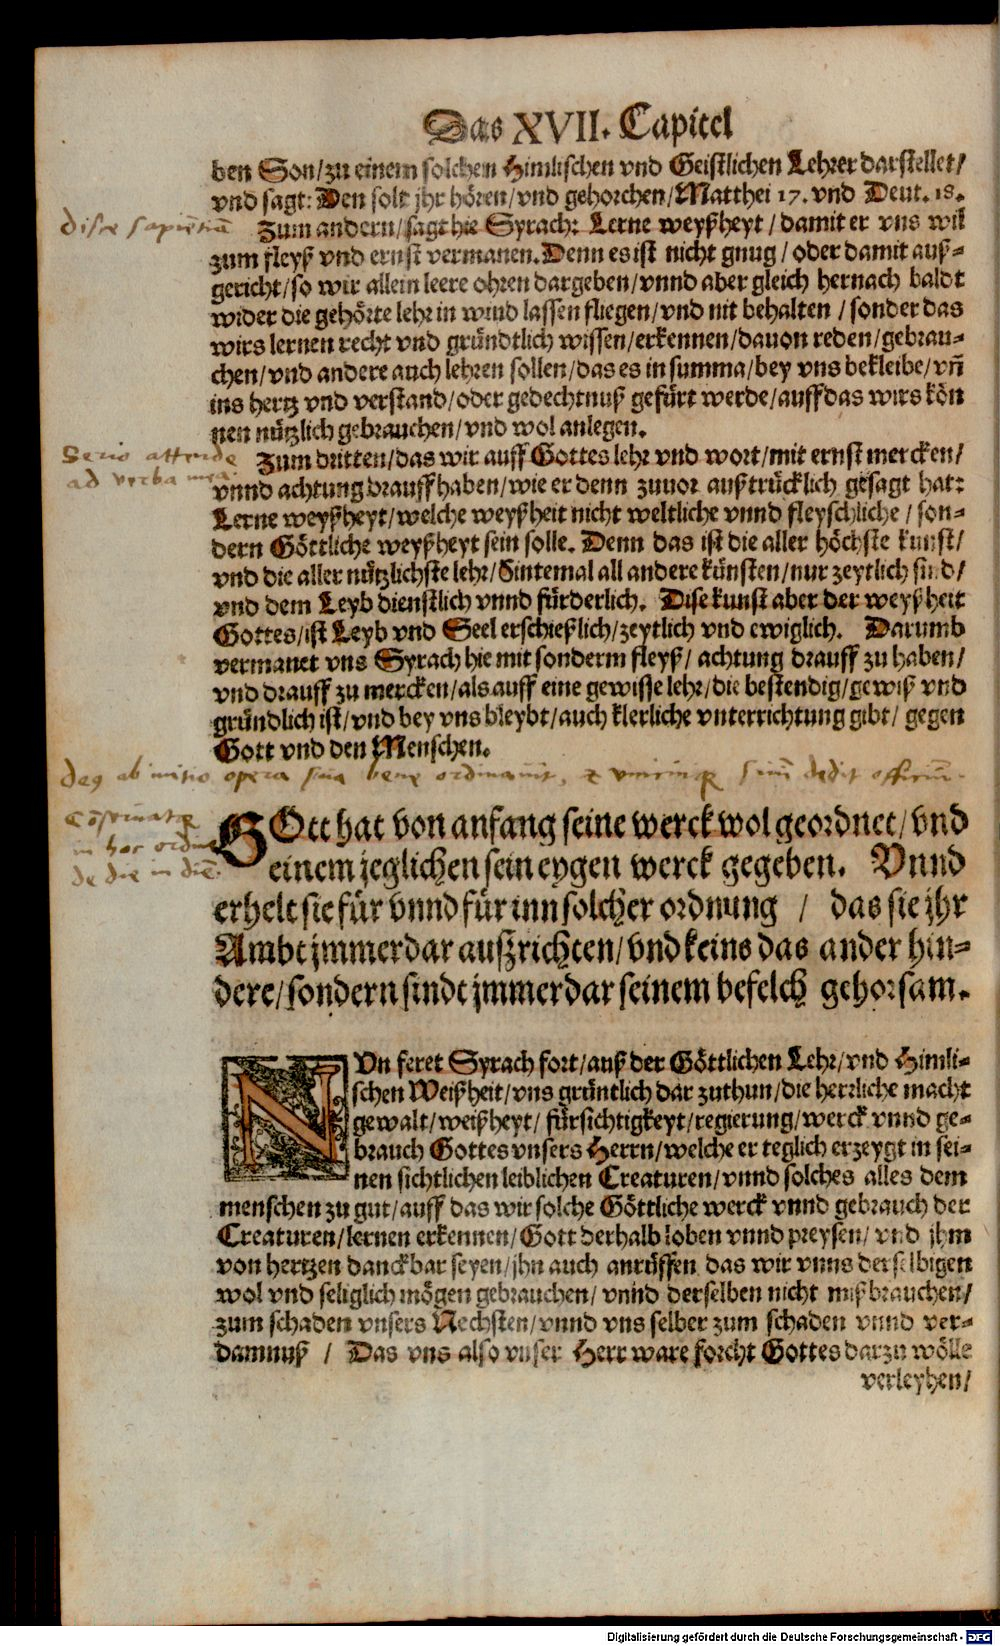 Das XVII. Capitel
ben Son/zu einem solchen Himlischen vnd Geistlichen Lehrer darstellet/
vnd sagt: Den solt jhr hören/vnd gehorchen/Matthei 17. vnd Deut. 18.
disce sapiẽtiã
Zum andern/sagt hie Syrach: Lerne weyßheyt/damit er vns wil
zum fleyß vnd ernst vermanen. Denn es ist nicht gnug/oder damit auß-
gericht/so wir allein leere ohren dargeben/vnnd aber gleich hernach baldt
wider die gehörte lehr in wind lassen fliegen/vnd nit behalten/sonder das
wirs lernen recht vnd gründtlich wissen/erkennen/dauon reden/gebrau-
chen/vnd andere auch lehren sollen/das es in summa/bey vns bekleibe/vñ
ins hertz vnd verstand/oder gedechtnuß gefürt werde/auff das wirs kön
nen nützlich gebrauchen/vnd wol anlegen.
Serio attende
ad verba mea.
Zum dritten/das wir auff Gottes lehr vnd wort/mit ernst mercken/
vnnd achtung drauff haben/wie er denn zuuor außtrücklich gesagt hat:
Lerne weyßheyt/welche weyßheit nicht weltliche vnnd fleyschliche/son-
dern Göttliche weyßheyt sein solle. Denn das ist die aller höchste kunst/
vnd die aller nützlichste lehr/Sintemal all andere künsten/nur zeytlich sind/
vnd dem Leyb dienstlich vnnd fürderlich. Dise kunst aber der weyßheit
Gottes/ist Leyb vnd Seel erschießlich/zeytlich vnd ewiglich. Darumb
vermanet vns Syrach hie mit sonderm fleyß/achtung drauff zu haben/
vnd drauff zu mercken/als auff eine gewisse lehr/die bestendig/gewiß vnd
gründlich ist/vnd bey vns bleybt/auch klerliche vnterrichtung gibt/gegen
Gott vnd den Menschen.
ab initio opera sua bene ordinauit, & suũ dedit officiũ.
in hoc ordine
de die in diẽ.
GOtt hat von anfang seine werck wol geordnet/vnd
einem jeglichen sein eygen werck gegeben. Vnnd
erhelt sie für vnnd für inn solcher ordnung / das sie jhr
Ambt jmmerdar außrichten/vnd keins das ander hin-
dere/sondern sindt jmmerdar seinem befelch gehorsam.
NVn feret Syrach fort/auß der Göttlichen Lehr/vnd Himli-
schen Weißheit/vns gründtlich dar zuthun/die herrliche macht
gewalt/weißheyt/fürsichtigkeyt/regierung/werck vnnd ge-
brauch Gottes vnsers Herrn/welche er teglich erzeygt in sei-
nen sichtlichen leiblichen Creaturen/vnnd solches alles dem
menschen zu gut/auff das wir solche Göttliche werck vnnd gebrauch der
Creaturen/lernen erkennen/Gott derhalb loben vnnd preysen/vnd jhm
von hertzen danckbar seyen/jhn auch anrüffen das wir vnns derselbigen
wol vnd seliglich mögen gebrauchen/vnnd derselben nicht mißbrauchen/
zum schaden vnsers Nechsten/vnnd vns selber zum schaden vnnd ver-
damnuß / Das vns also vnser Herr ware forcht Gottes darzu wölle
verleyhen/
Digitalisierung gefördert durch die Deutsche Forschungsgemeinschaft - DFG